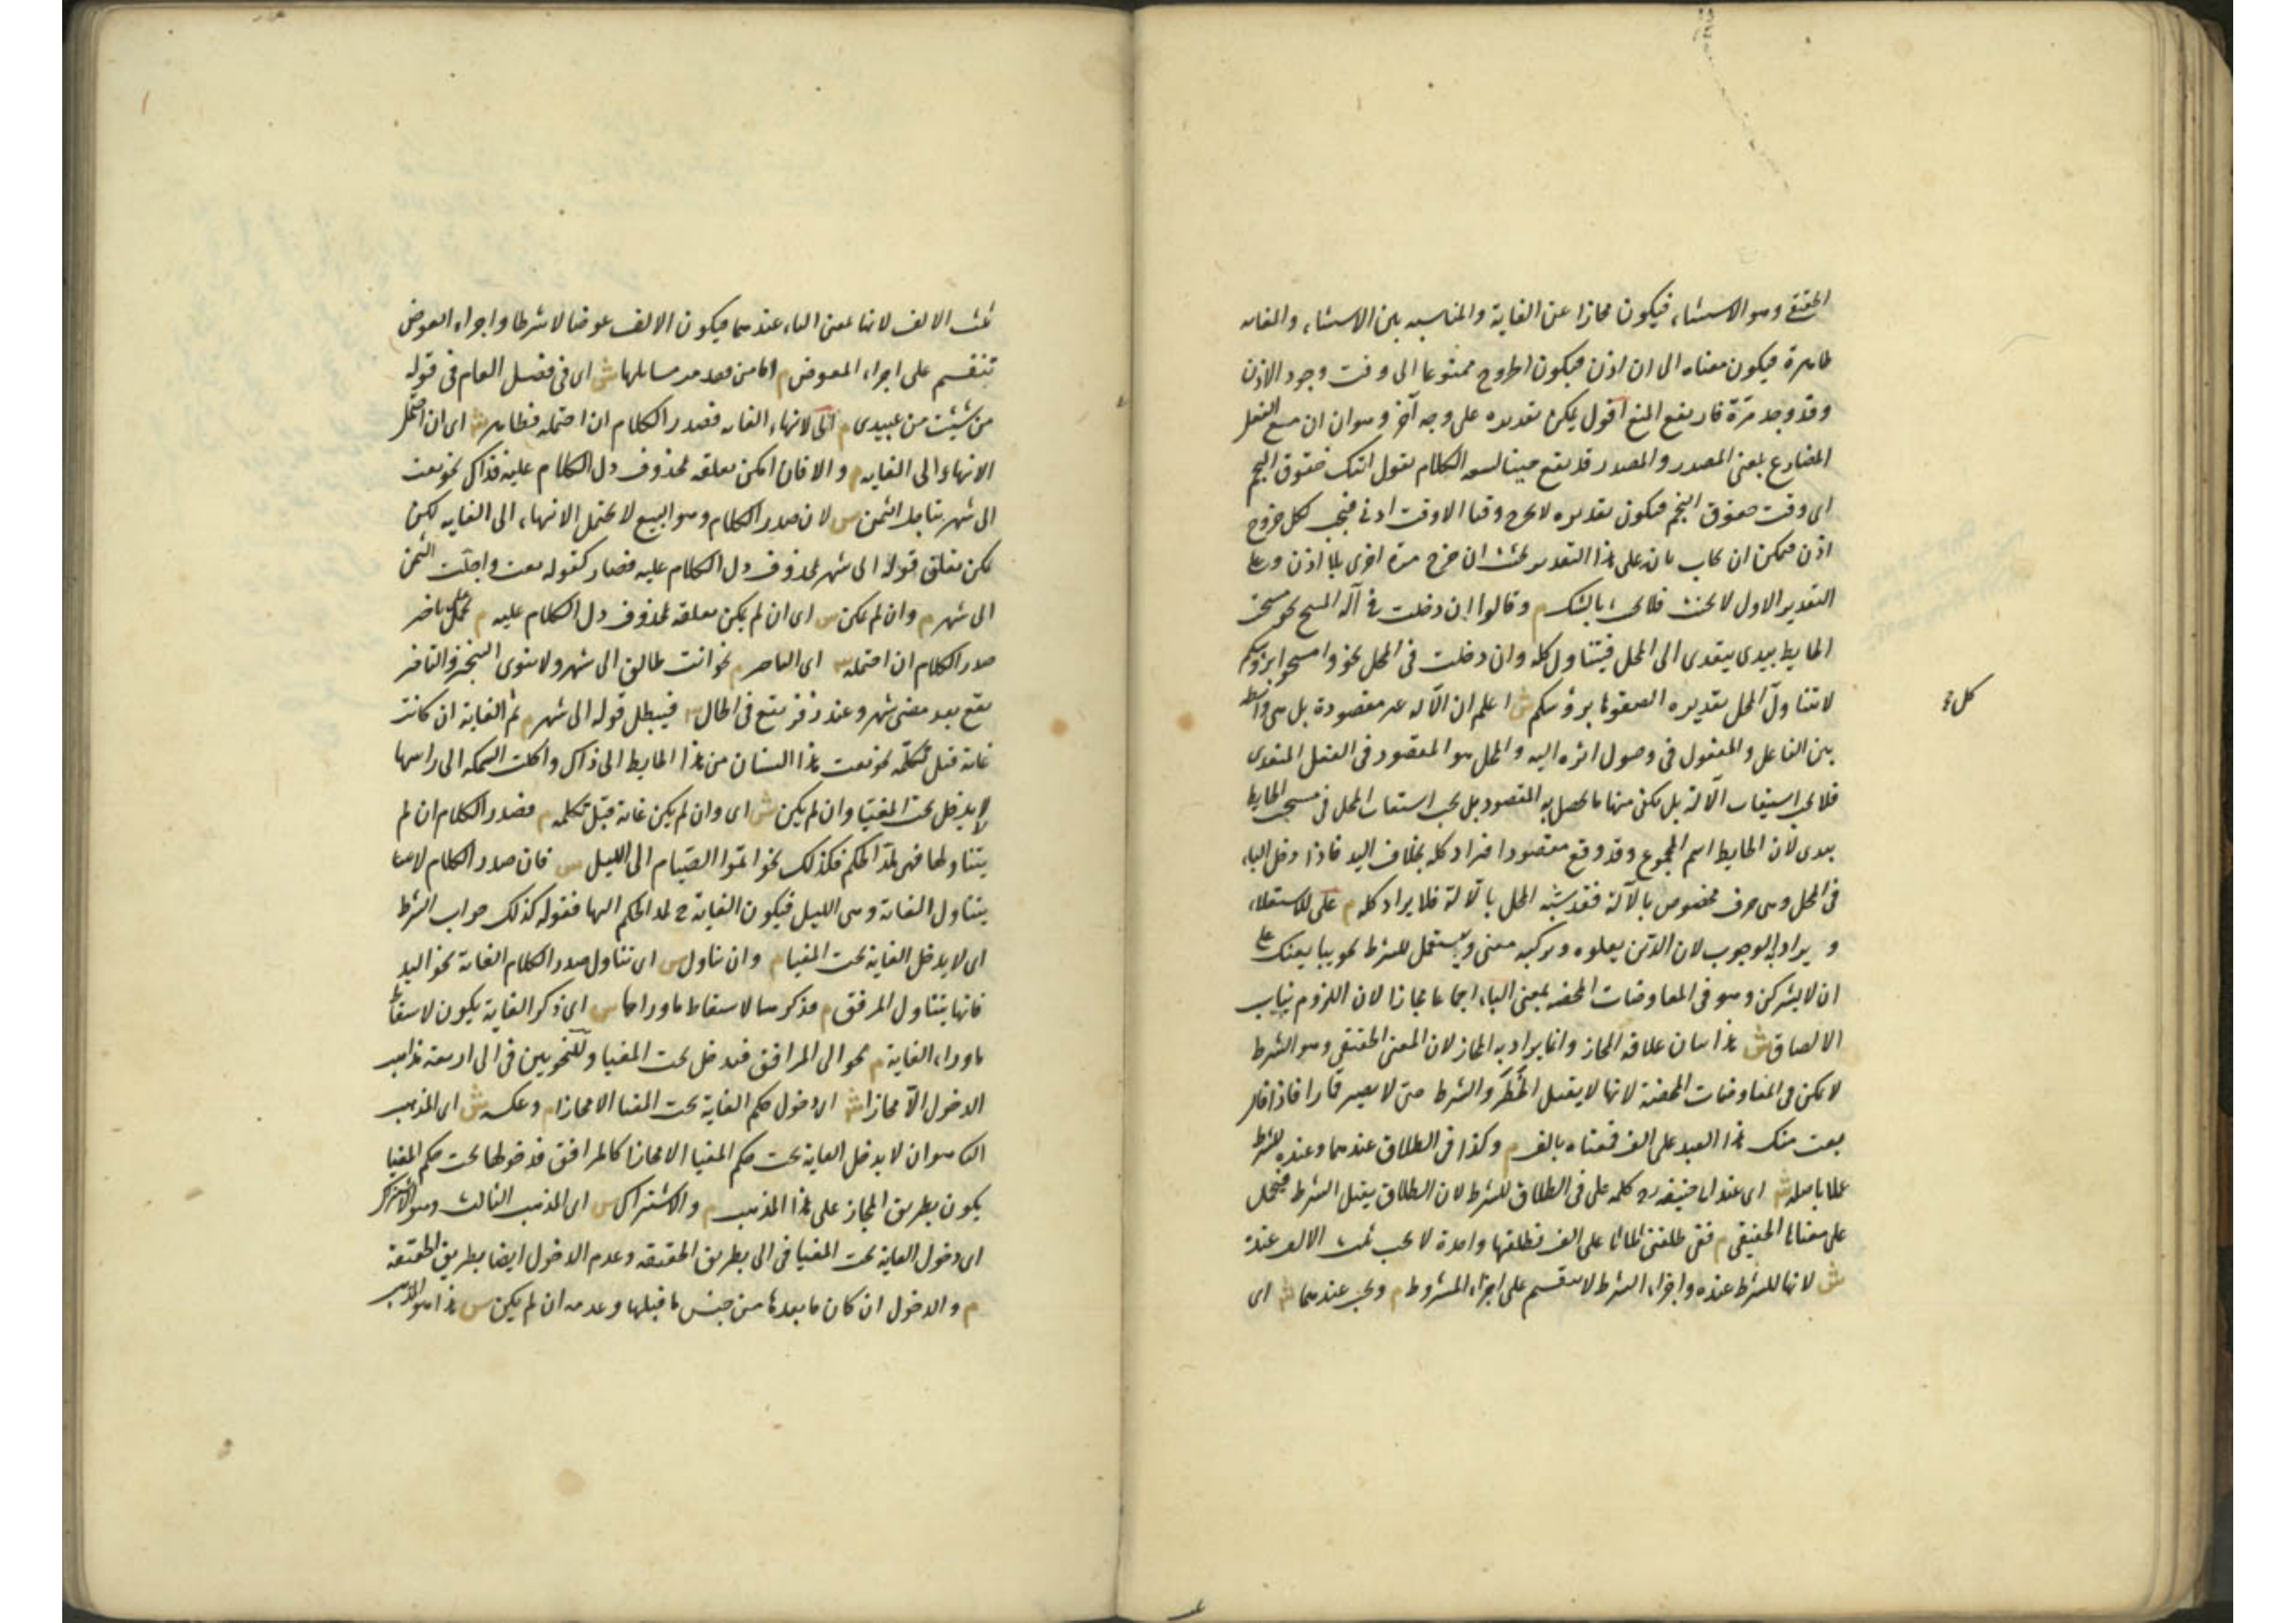 الحقيقي وهو الاستثناء فيكون مجازا عن الغاية والمناسبة بين الاستثناء والغاية
ظاهرة فيكون معناه الى ان اذن فيكون الخروج ممنوعا الى وقت وجود الاذن
وقد وجد مرّة فارتفع المنع اقول يمكن تقديره على وجه آخر وهو ان ان مع الفعل
المضارع بمعنى المصدر والمصدر قد يقع حينا لسعة الكلام تقول آتيك خفوق النجم
اى وقت خفوق النجم فيكون تقديره لا تخرج وقتا الا وقت اذنى فيجب لكل خروج
اذن فيمكن ان يجاب بانه على هذا التقدير يحنث ان خرج مرة اخرى بلا اذن وعلى
التقدير الاول لا يحنث فلا يحنث بالشك م وقالوا ان دخلت فى آلة المسح نحو مسحت
الحايط بيدى يتعدى الى المحل فيتناول كله وان دخلت فى المحل نحو وامسحوا برؤسكم
لا يتناول المحل تقديره الصقوها برؤسكم ش اعلم ان الآلة غير مقصودة بل هى واسطة
بين الفاعل والمفعول فى وصول اثره اليه والمحل هو المقصود فى الفعل المتعدى
فلا يجب استيعاب الآلة بل يكفى منها ما يحصل به المقصود بل يجب استيعاب المحل فى مسح الحايط
بيدى لان الحايط اسم المجموع وقد وقع مقصودا فيراد كله بخلاف اليد فاذا دخل الباء
كل
فى المحل وهى حرف مخصوص بالآلة فقد شبّه المحل بالآلة فلا يراد كله م على للاستعلاء
و يراد به الوجوب لان الدين يعلوه ويركبه معنى ويستعمل للشرط نحو يبايعنك على
ان لا يشركن وهو فى المعاوضات المحضة بمعنى الباء اجماعا مجازا لان اللزوم يناسب
الالصاق ش هذا بيان علاقة المجاز وانما يراد به المجاز لان المعنى الحقيقى وهو الشرط
لا يمكن فى المعاوضات المحضة لانها لا يقبل الخطر والشرط حتى لا يصير قمارا فاذا قال
بعت منك هذا العبد على الف فمعناه بالف م وكذا فى الطلاق عندهما وعنده للشرط
عملا باصله ش اى عند ابى حنيفة رح كلمة على فى الطلاق للشرط لان الطلاق يقبل الشرط فيحمل
على معناها الحقيقى م ففى طلقنى ثلاثا على الف فطلقها واحدة لا يجب ثلث الالف عنده
ش لانها للشرط عنده واجزاء الشرط لا ينقسم على اجزاء المشروط م ويجب عندهما ش اى
ثلث الالف لانها بمعنى الباء عندهما فيكون الالف عوضا لا شرطا واجزاء العوض
تنقسم على اجزاء المعوض م اما من فقد مر مسايلها ش اى فى فصل العام فى قوله
من شئت من عبيدى م الى لانتهاء الغاية فصدر الكلام ان احتمله فظاهر ش اى ان احتمل
الانتهاء الى الغاية م والا فان امكن تعلقه بمحذوف دل الكلام عليه فذاك نحو بعت
الى شهر يتاجل الثمن س لان صدر الكلام وهو البيع لا يحتمل الانتهاء الى الغاية لكن
يمكن تعلق قوله الى شهر بمحذوف دل الكلام عليه فصار كقوله بعت واجلت الثمن
الى شهر م وان لم يكن س اى ان لم يكن تعلقه بمحذوف دل الكلام عليه م يحمل على تاخير
صدر الكلام ان احتمله س اى التاخير م نحو انت طالق الى شهر ولا ينوى التنجيز والتاخير
يقع بعد مضى شهر وعند زفر يقع فى الحال س فيبطل قوله الى شهر م ثم الغاية ان كانت
غاية قبل تكلمه نحو بعت هذا البستان من هذا الحايط الى ذاك واكلت السمكة الى راسها
لا يدخل تحت المغيّا وان لم يكن ش اى وان لم يكن غاية قبل تكلمه م فصدر الكلام ان لم
يتناولها فهى لمدّ الحكم فكذلك نحو اتموا الصيام الى الليل س فان صدر الكلام لا
يتناول الغاية وهى الليل فيكون الغاية ح لمد الحكم اليها فقوله كذلك جواب الشرط
اى لا يدخل الغاية تحت المغيا م وان تناول س اى تناول صدر الكلام الغاية نحو اليد
فانها يتناول المرفق م فذكرها لاسقاط ما وراها س اى ذكر الغاية يكون لاسقاط
ما وراء الغاية م نحو الى المرافق فتدخل تحت المغيا وللنحويين فى الى اربعة مذاهب
الدخول الا مجازا ش اى دخول حكم الغاية تحت المغيا الا مجازا م وعكسه ش اى المذهب
الثانى هو ان لا يدخل الغاية تحت حكم المغيا الا مجازا كالمرافق فدخولها تحت حكم المغيا
يكون بطريق المجاز على هذا المذهب م والاشتراك س اى المذهب الثالث وهو الاشتراك
اى دخول الغاية تحت المغيا فى الى بطريق الحقيقة وعدم الدخول ايضا بطريق الحقيقة
م والدخول ان كان ما بعدها من جنس ما قبلها وعدمه ان لم يكن س هذا هو المذهب